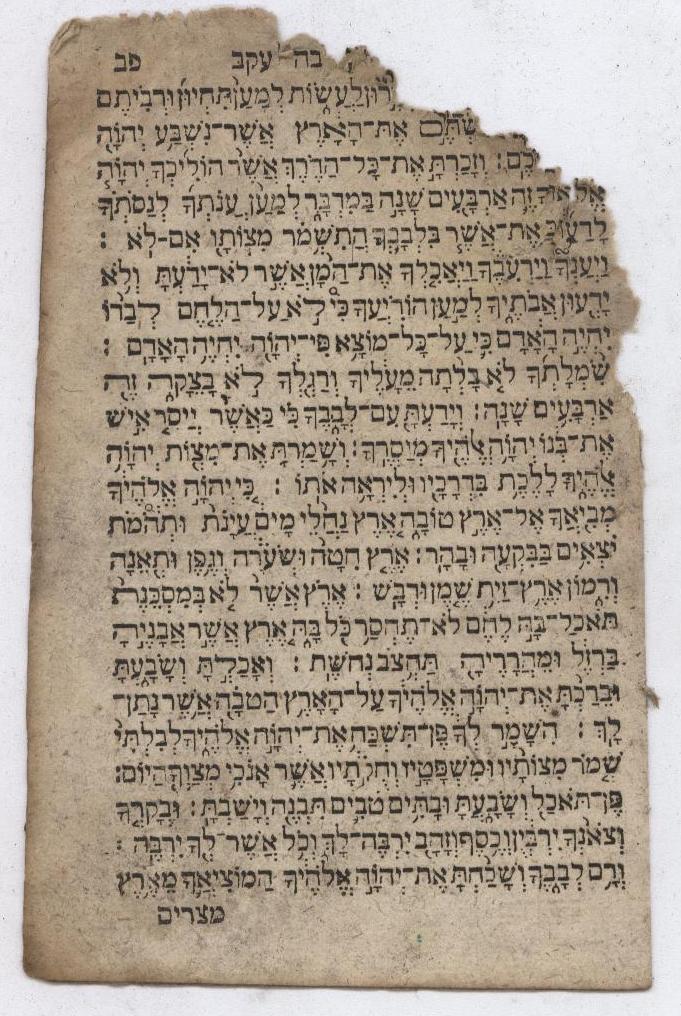 עקב פב
לַעֲשׂוֹת לְמַעַן תִּחְיוּן וּרְבִיתֶם
אֶת־הָאָרֶץ אֲשֶׁר־נִשְׁבַּע יְהוָֹה
וְזָכַרְתָּ אֶת־כָּל־הַדֶּרֶךְ אֲשֶׁר הוֹלִיכְךָ יְהוָֹה
זֶה אַרְבָּעִים שָׁנָה בַּמִּדְבָּר לְמַעַן עַנֹּתְךָ לְנַסֹּתְךָ
לָדַעַת אֶת־אֲשֶׁר בִּלְבָבְךָ הֲתִשְׁמֹר מִצְוֹתָו אִם־לֹא :
וַיְעַנְּךָ וַיַּרְעִבֶךָ וַיַּאֲכִלְךָ אֶת־הַמָּן אֲשֶׁר לֹא־יָדַעְתָּ וְלֹא
יָדְעוּן אֲבֹתֶיךָ לְמַעַן הוֹדִיעֲךָ כִּי לֹא עַל־הַלֶּחֶם לְבַדּוֹ
יִחְיֶה הָאָדָם כִּי עַל־כָּל־מוֹצָא פִי־יְהוָֹה יִחְיֶה הָאָדָם :
שִׂמְלָתְךָ לֹא בָלְתָה מֵעָלֶיךָ וְרַגְלְךָ לֹא בָצֵקָה זֶה
אַרְבָּעִים שָׁנָה : וְיָדַעְתָּ עִם־לְבָבֶךָ כִּי כַּאֲשֶׁר יְיַסֵּר אִישׁ
אֶת־בְּנוֹ יְהוָֹה אֱלֹהֶיךָ מְיַסְּרֶךָּ : וְשָׁמַרְתָּ אֶת־מִצְוֹת יְהוָֹה
אֱלֹהֶיךָ לָלֶכֶת בִּדְרָכָיו וּלְיִרְאָה אֹתוֹ : כִּי יְהוָֹה אֱלֹהֶיךָ
מְבִיאֲךָ אֶל־אֶרֶץ טוֹבָה אֶרֶץ נַחֲלֵי מָיִם עֲיָנֹת וּתְהֹמֹת
יֹצְאִים בַּבִּקְעָה וּבָהָר : אֶרֶץ חִטָּה וּשְׂעֹרָה וְגֶפֶן וּתְאֵנָה
וְרִמּוֹן אֶרֶץ־זֵית שֶׁמֶן וּדְבָשׁ : אֶרֶץ אֲשֶׁר לֹא בְמִסְכֵּנֻת
תֹּאכַל־בָּהּ לֶחֶם לֹא־תֶחְסַר כֹּל בָּהּ אֶרֶץ אֲשֶׁר אֲבָנֶיהָ
בַרְזֶל וּמֵהֲרָרֶיהָ תַּחְצֹב נְחֹשֶׁת : וְאָכַלְתָּ וְשָׂבָעְתָּ
וּבֵרַכְתָּ אֶת־יְהוָֹה אֱלֹהֶיךָ עַל־הָאָרֶץ הַטֹּבָה אֲשֶׁר נָתַן־
לָךְ : הִשָּׁמֶר לְךָ פֶּן־תִּשְׁכַּח אֶת־יְהוָֹה אֱלֹהֶיךָ לְבִלְתִּי
שְׁמֹר מִצְוֹתָיו וּמִשְׁפָּטָיו וְחֻקֹּתָיו אֲשֶׁר אָנֹכִי מְצַוְּךָ הַיּוֹם :
פֶּן־תֹּאכַל וְשָׂבָעְתָּ וּבָתִּים טֹבִים תִּבְנֶה וְיָשָׁבְתָּ : וּבְקָרְךָ
וְצֹאנְךָ יִרְבְּיֻן וְכֶסֶף וְזָהָב יִרְבֶּה־לָּךְ וְכֹל אֲשֶׁר־לְךָ יִרְבֶּה :
וְרָם לְבָבֶךָ וְשָׁכַחְתָּ אֶת־יְהוָֹה אֱלֹהֶיךָ הַמּוֹצִיאֲךָ מֵאֶרֶץ
מצרים